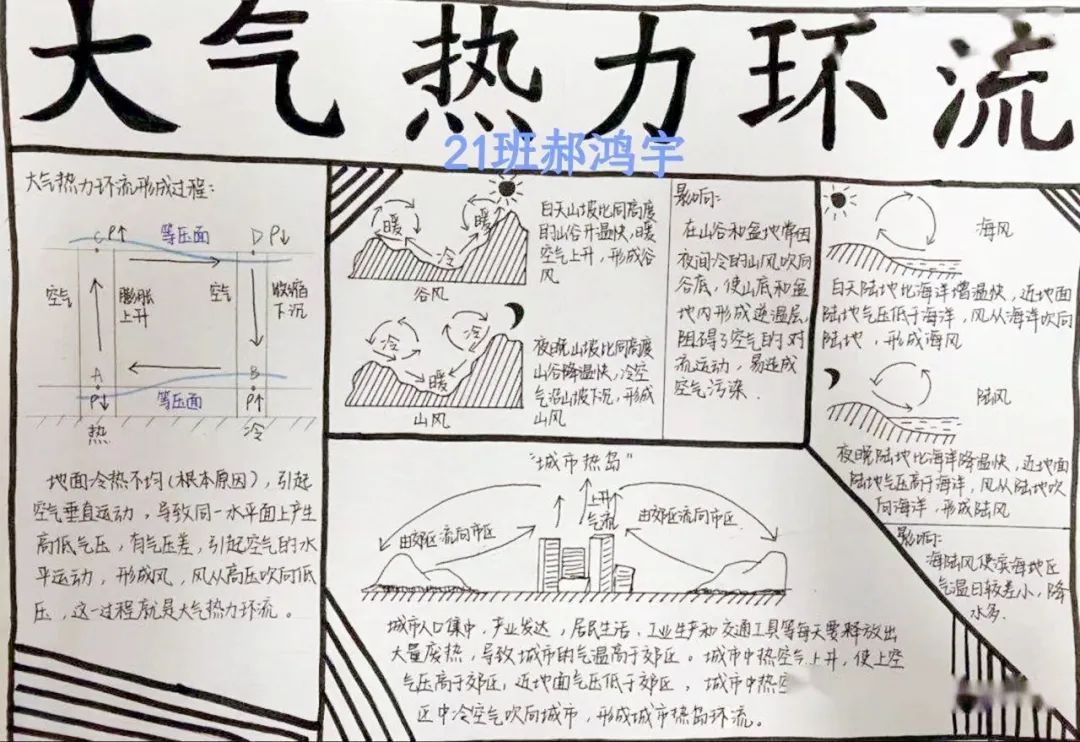 大气热力环流
21班郝鸿宇
大气热力环流形成过程：
C P↑ 等压面 D P↓
空气 膨胀上升 空气 收缩下沉
A P↓ 等压面 B P↑
热 冷
地面冷热不均(根本原因)，引起
空气垂直运动，导致同一水平面上产生
高低气压，有气压差，引起空气的水
平运动，形成风，风从高压吹向低
压，这一过程就是大气热力环流。
暖 冷 暖
谷风
白天山坡比同高度
的山谷升温快，暖
空气上升，形成谷
风
冷 暖 冷
山风
夜晚山坡比同高度
山谷降温快，冷空
气沿山坡下沉，形成
山风
影响：
在山谷和盆地常因
夜间冷的山风吹向
谷底，使山底和盆
地内形成逆温层，
阻碍了空气的对
流运动，易造成
空气污染．
海风
白天陆地比海洋增温快，近地面
陆地气压低于海洋，风从海洋吹向
陆地，形成海风
陆风
夜晚陆地比海洋降温快，近地面
陆地气压高于海洋，风从陆地吹
向海洋，形成陆风
影响：
海陆风使滨海地区
气温日较差小，降
水多．
"城市热岛"
上升
气流
由郊区流向市区 由郊区流向市区
城市人口集中，产业发达，居民生活、工业生产和交通工具等每天要释放出
大量废热，导致城市的气温高于郊区。城市中热空气上升，使上空
气压高于郊区，近地面气压低于郊区，城市中热空
区中冷空气吹向城市，形成城市热岛环流。